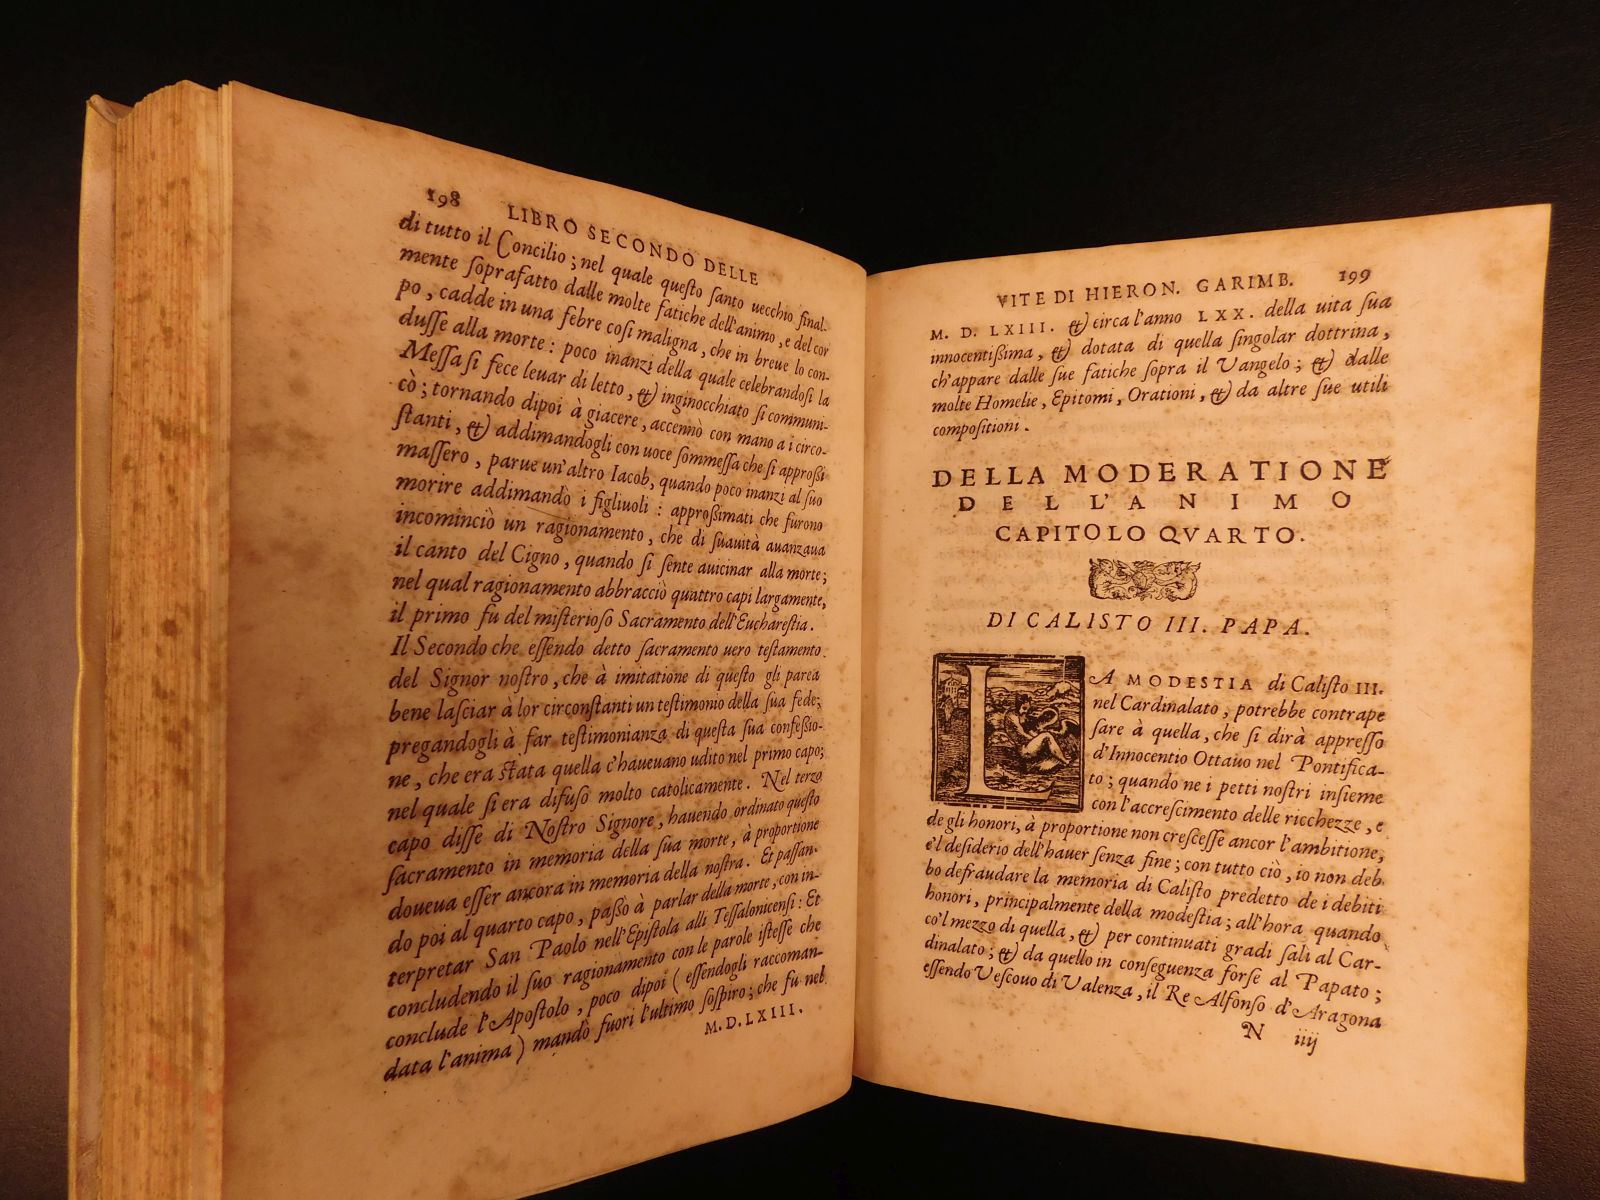 198 LIBRO SECONDO DELLE
di tutto il Concilio; nel quale questo santo uecchio final-
mente soprafatto dalle molte fatiche dell'animo, e del cor
po, cadde in una febre cosi maligna, che in breue lo con-
dusse alla morte: poco inanzi della quale celebrandosi la
Messa si fece leuar di letto, & inginocchiato si communi-
cò; tornando dipoi à giacere, accennò con mano a i circo-
stanti, & addimandogli con uoce sommessa che si approssi
massero, parue un'altro Iacob, quando poco inanzi al suo
morire addimandò i figliuoli: approssimati che furono
incominciò un ragionamento, che di suauità auanzaua
il canto del Cigno, quando si sente auicinar alla morte;
nel qual ragionamento abbracciò quattro capi largamente,
il primo fù del misterioso Sacramento dell'Eucharestia.
Il Secondo che essendo detto sacramento uero testamento
del Signor nostro, che à imitatione di questo gli parea
bene lasciar à lor circonstanti un testimonio della sua fede;
pregandogli à far testimonianza di questa sua confessio-
ne, che era stata quella c'haueuano udito nel primo capo;
nel quale si era difuso molto catolicamente. Nel terzo
capo disse di Nostro Signore, hauendo ordinato questo
sacramento in memoria della sua morte, à proportione
doueua esser ancora in memoria della nostra. Et passan-
do poi al quarto capo, passò à parlar della morte, con in-
terpretar San Paolo nell'Epistola alli Tessalonicensi: Et
concludendo il suo ragionamento con le parole istesse che
conclude l'Apostolo, poco dipoi (essendogli raccoman-
data l'anima) mandò fuori l'ultimo sospiro; che fù nel
M.D.LXIII.
VITE DI HIERON. GARIMB. 199
M. D. LXIII. & circa l'anno LXX. della uita sua
innocentissima, & dotata di quella singolar dottrina,
ch'appare dalle sue fatiche sopra il Vangelo; & dalle
molte Homelie, Epitomi, Orationi, & da altre sue utili
compositioni.
DELLA MODERATIONE
DELL'ANIMO
CAPITOLO QVARTO.
DI CALISTO III. PAPA.
LA MODESTIA di Calisto III.
nel Cardinalato, potrebbe contrape
sare à quella, che si dirà appresso
d'Innocentio Ottauo nel Pontifica-
to; quando ne i petti nostri insieme
con l'accrescimento delle ricchezze, e
de gli honori, à proportione non crescesse ancor l'ambitione,
e'l desiderio dell'hauer senza fine; con tutto ciò, io non deb
bo defraudare la memoria di Calisto predetto de i debiti
honori, principalmente della modestia; all'hora quando
co'l mezzo di quella, & per continuati gradi salì al Car-
dinalato; & da quello in conseguenza forse al Papato;
essendo Vescouo di Valenza, il Re Alfonso d'Aragona
N iiij